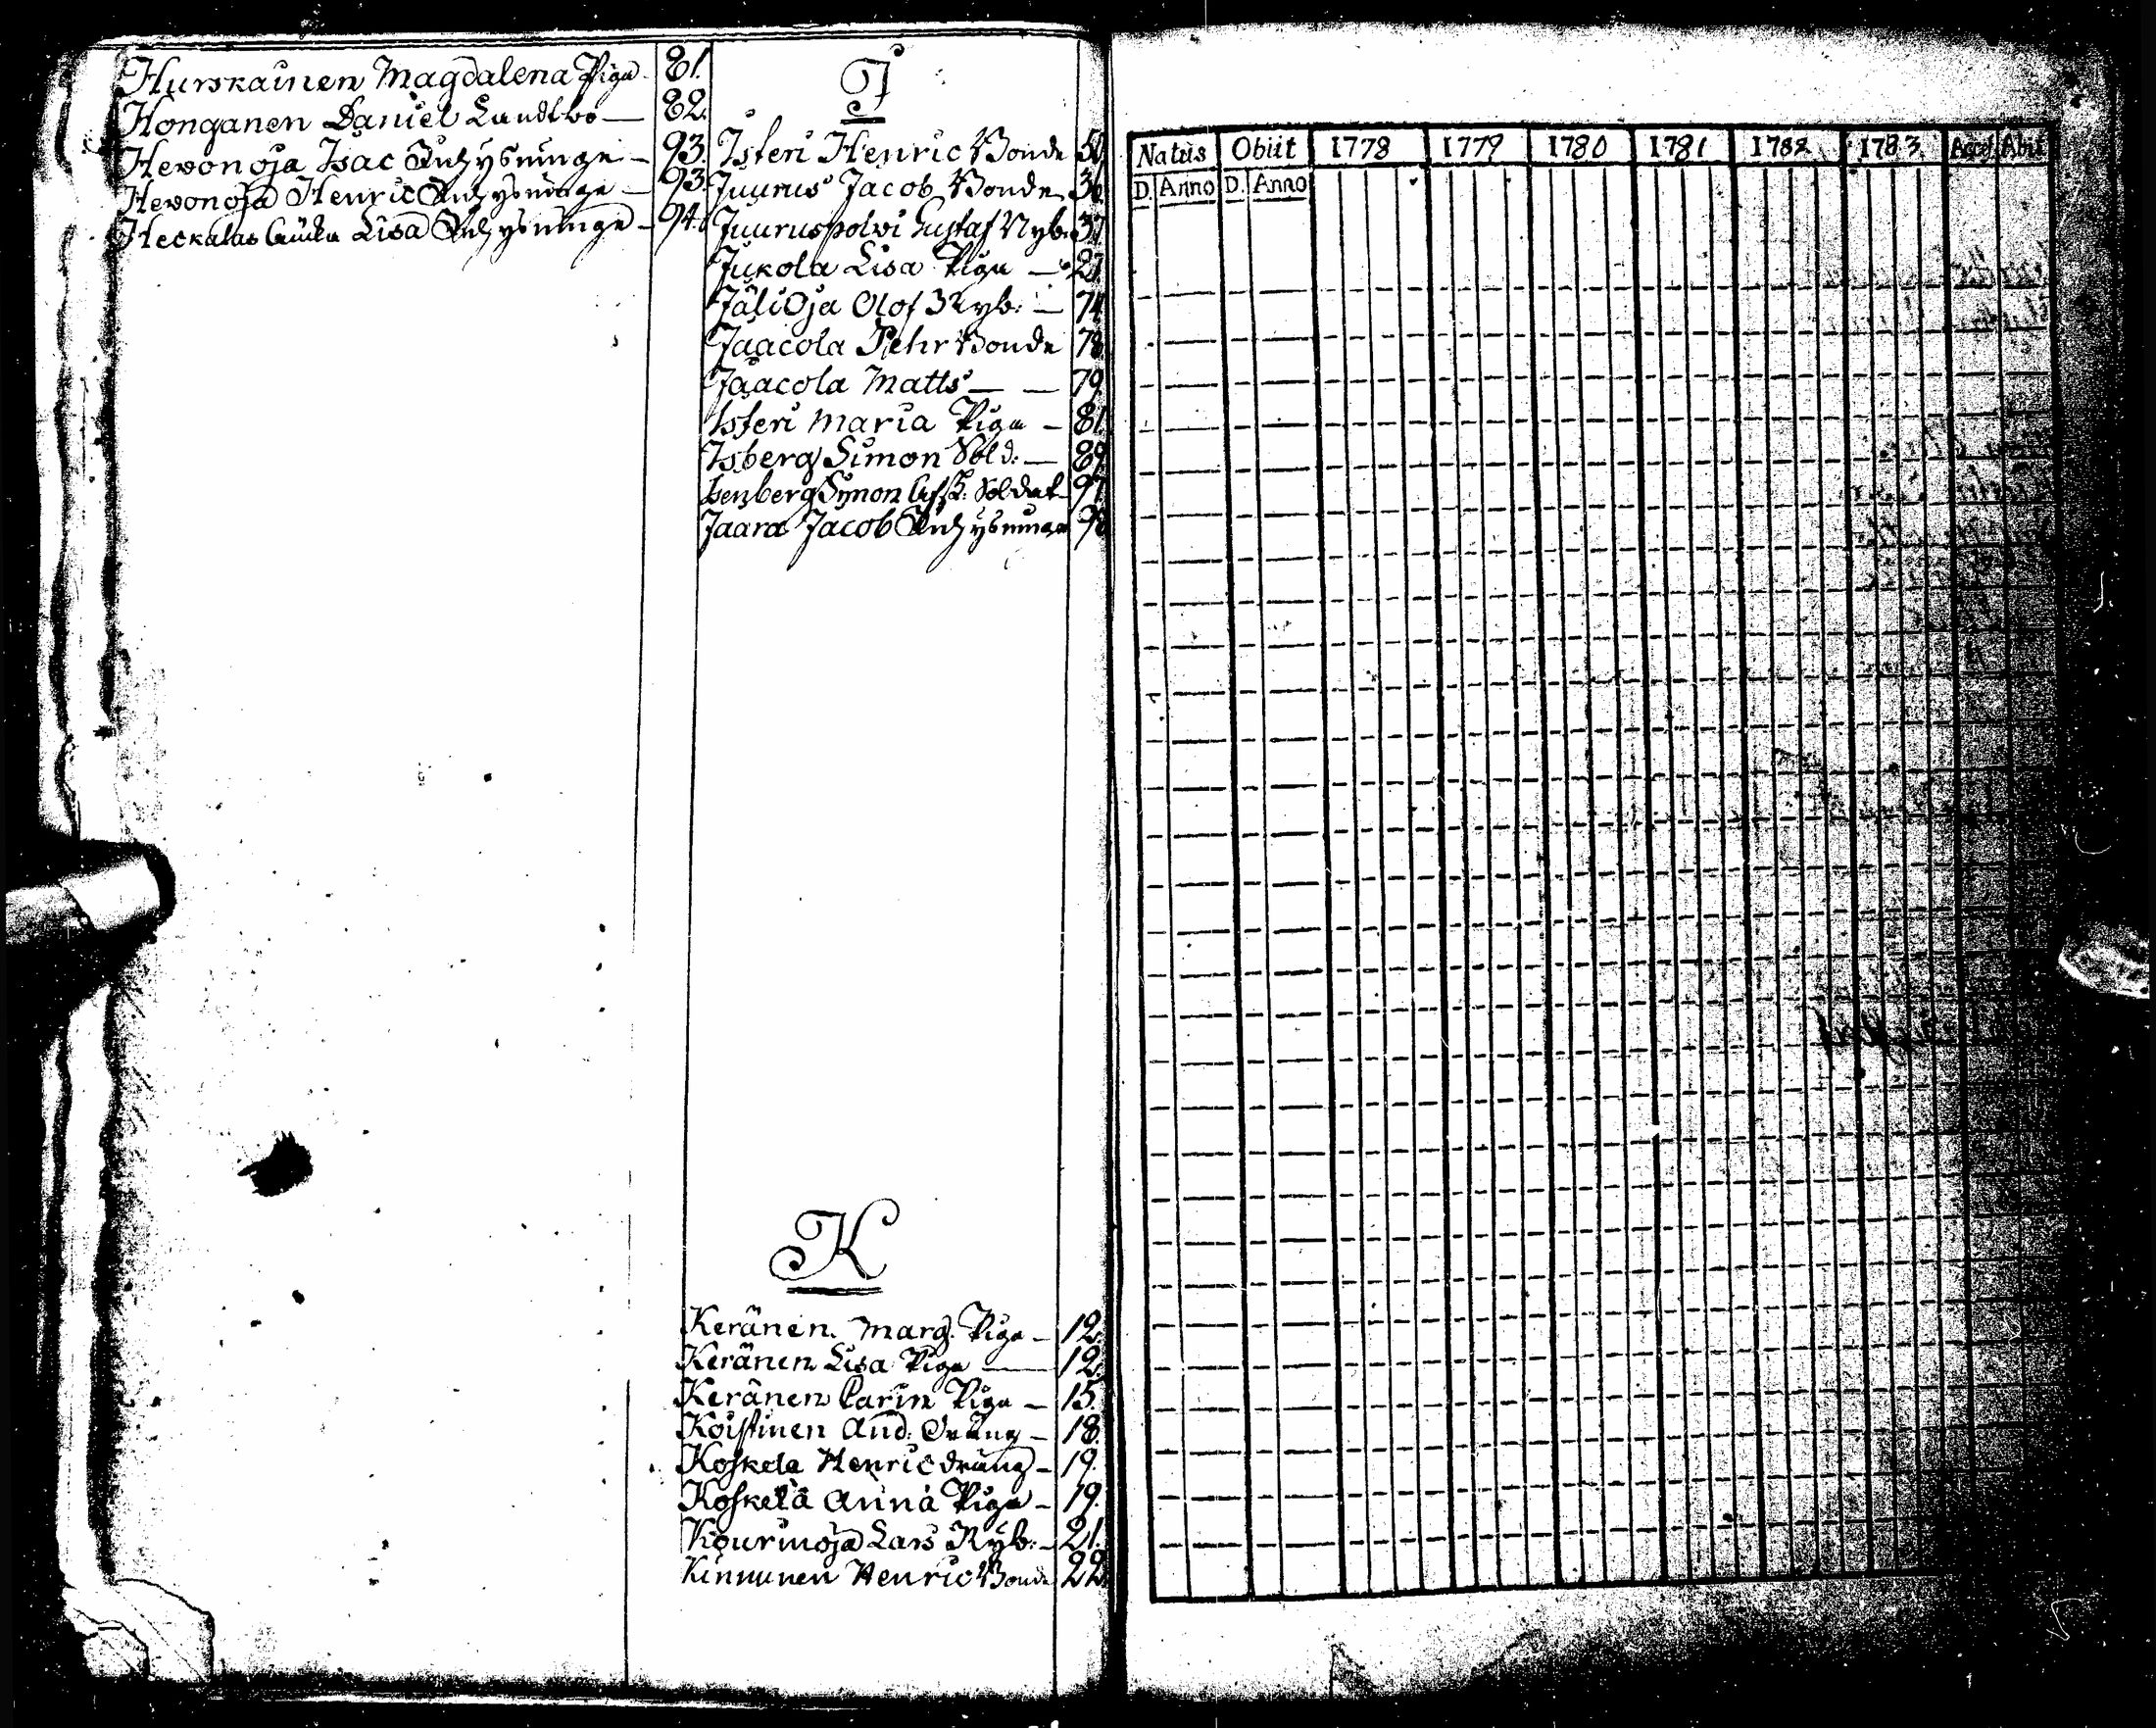 Hurskainen Magdalena Piga 81.
Honganen Daniel Landtbo — 82.
Hevonoja Isac Inhysninge — 93.
Hevonoja Henric Inhysninge — 93.
Heckalas Enka Lisa Inhysninge — 94.
J
Isteri Henric Bonde 50
Juurus Jacob Bonde 36
Juuruspolvi Gustaf Nyb. 37
Jukola Lisa Piga — 27
Jäli Oja Olof Nyb: — 74
Jaacola Pehr Bonde 78
Jaacola Matts — — 79
Isteri Maria Piga — 81.
Isberg Simon Sold: — 89
Isenberg Symon Afsk: Soldat 97
Jaara Jacob Inhysninge 98
K
Keränen. Marg. Piga — 12.
Keränen Lisa Piga — 12.
Keränen Carin Piga — 15.
Koistinen And. Dräng — 18.
Koskela Henric dräng — 19.
Koskela Anna Piga — 19.
Kourinoja Lars Nyb: — 21.
Kinnunen Henric Bonde 22.
Natus Obiit 1778 1779 1780 1781 1782 1783 Acces Abit
D. Anno D. Anno